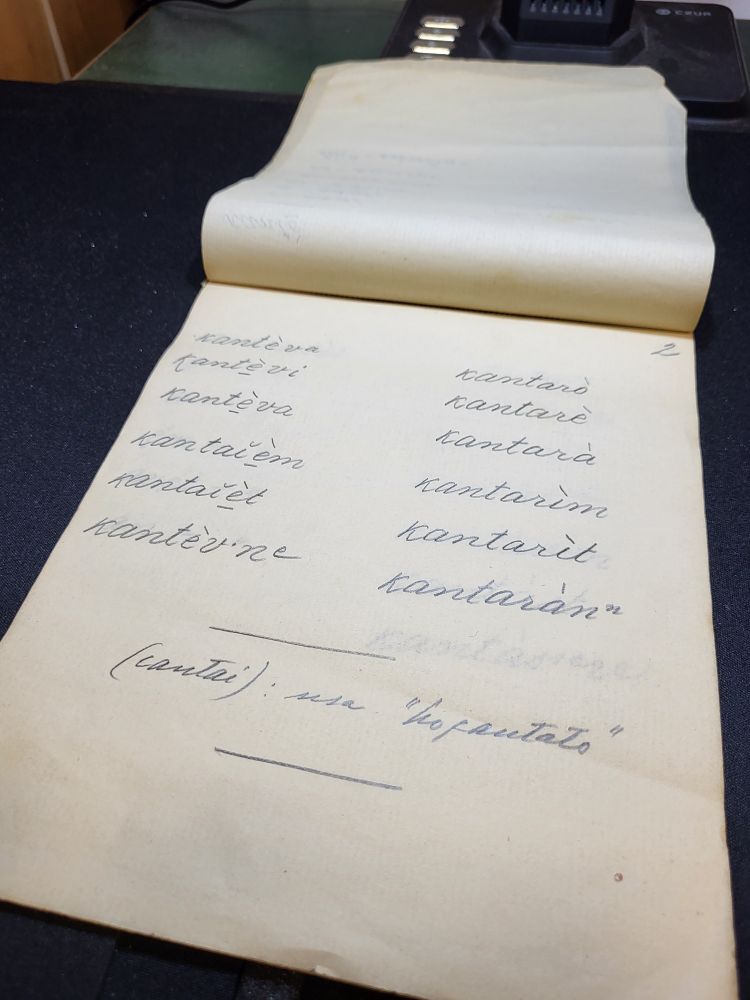 CZUR
2
kantèva
kantèvi
kantèva
kantaĭèm
kantaĭèt
kantèv·ne
kantarò
kantarè
kantarà
kantarìm
kantarìt
kantarànⁿ
(cantai): usa "ho cantato"